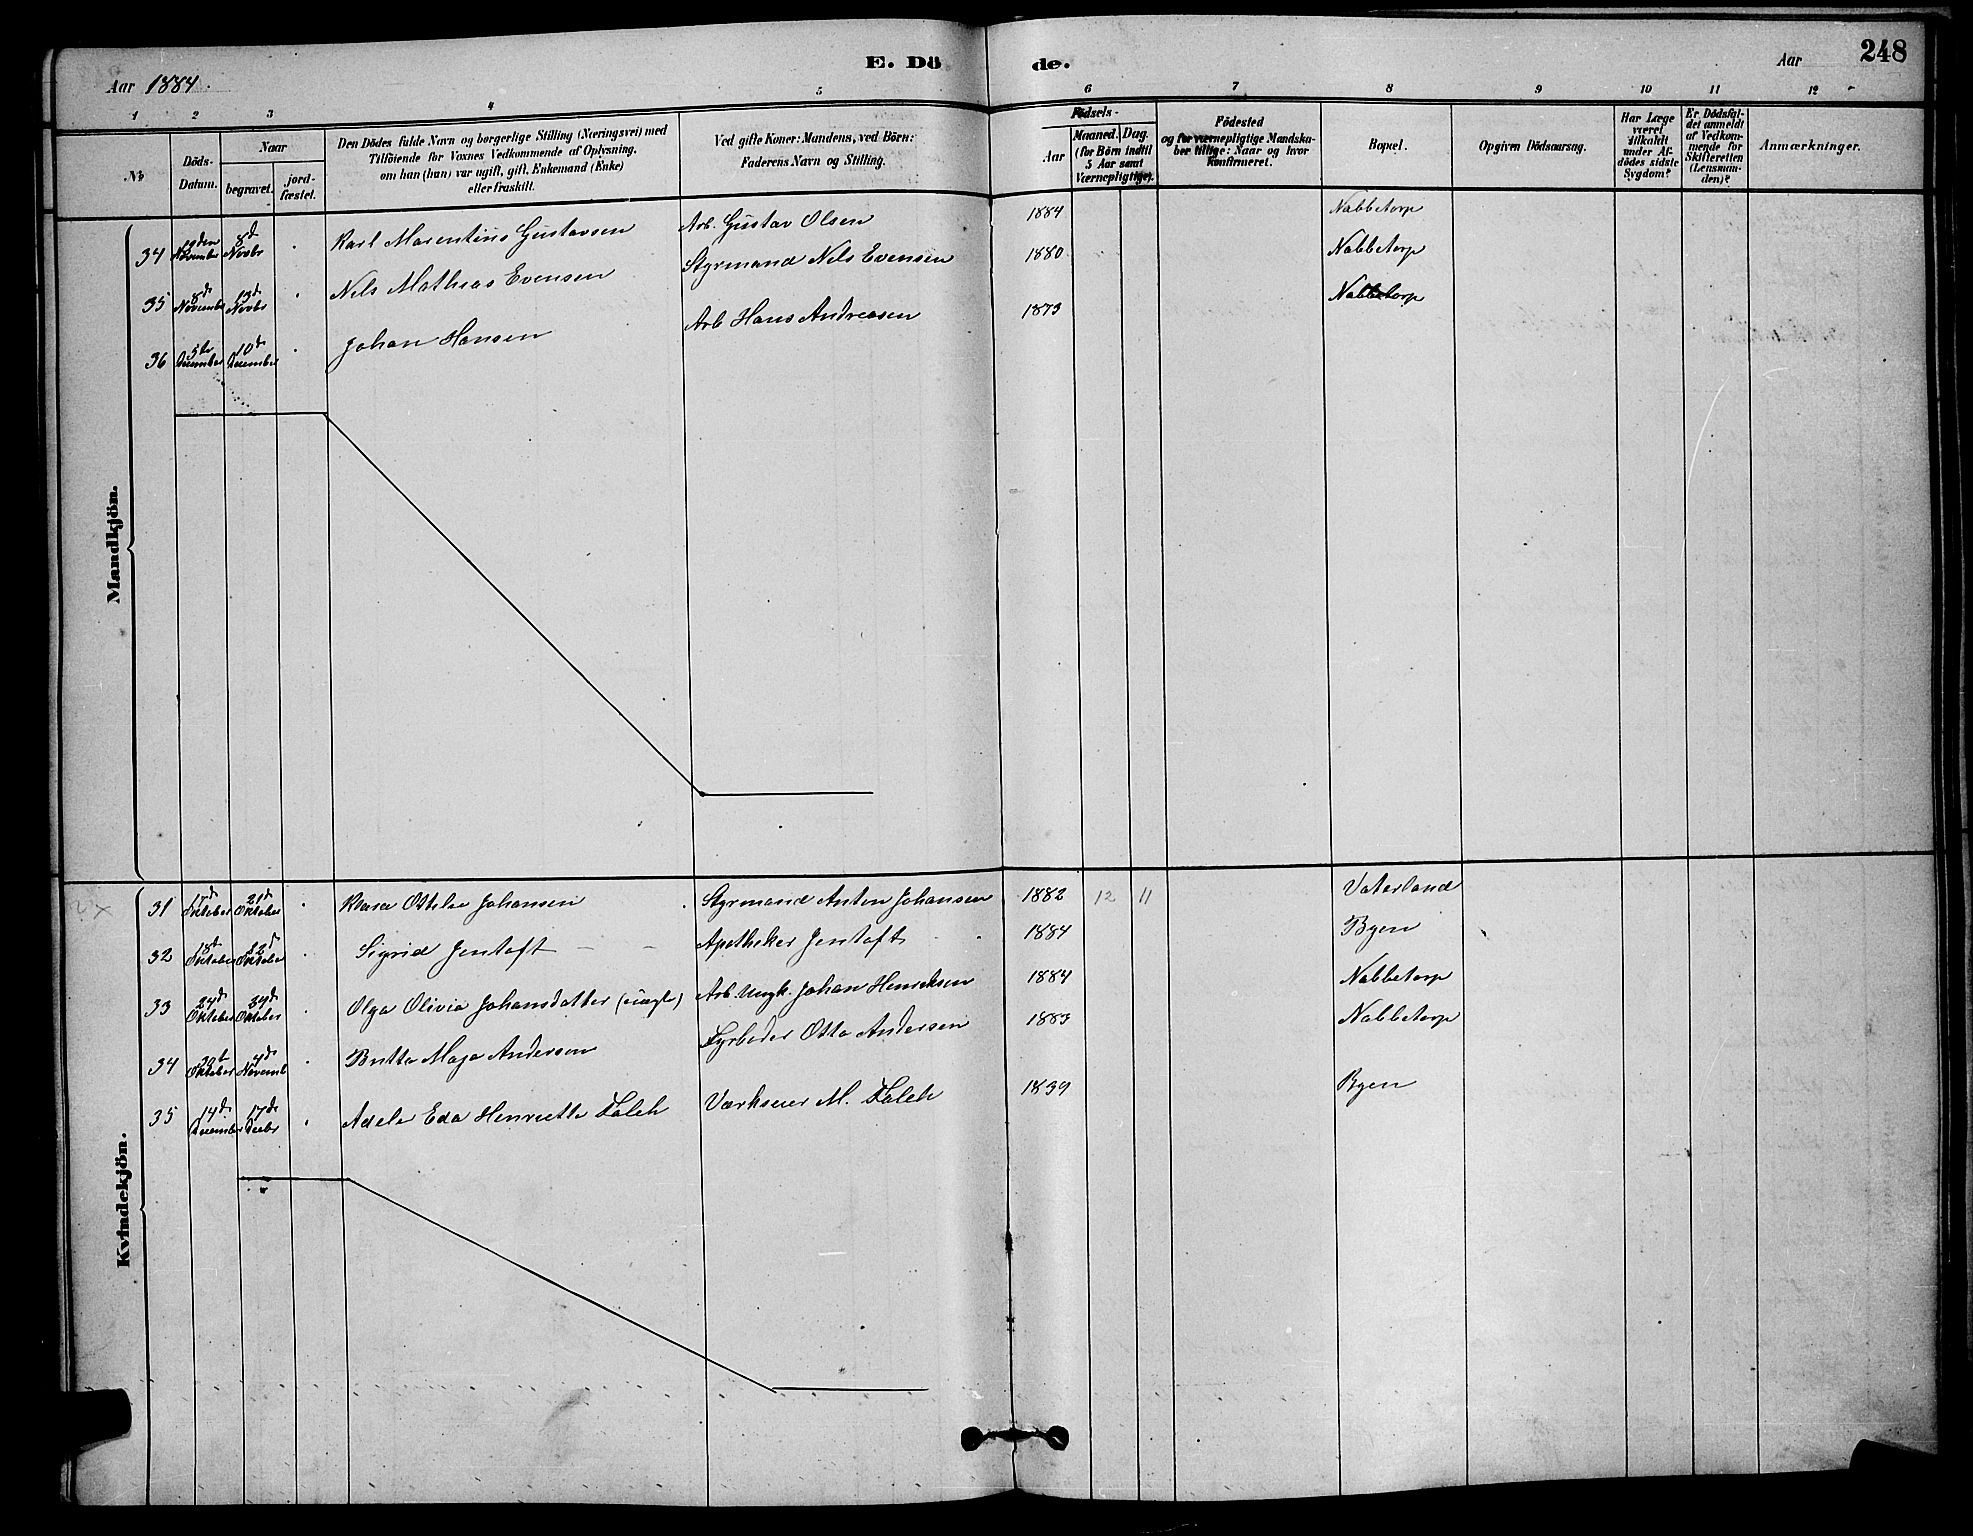 Aar 1884.
E. Dö de.
Aar
248
1 2 3 4 5 6 7 8 9 10 11 12
No
Döds-Datum.
Naar
begravet.
jord-fæstet.
Den Dödes fulde Navn og borgerlige Stilling (Næringsvei) med
Tilföiende for Voxnes Vedkommende af Oplysning,
om han (hun) var ugift, gift, Enkemand (Enke)
eller fraskilt.
Ved gifte Koner: Mandens, ved Börn:
Faderens Navn og Stilling.
Födsels-
Aar
Maaned. Dag.
(for Börn indtil
5 Aar samt
Værnepligtige).
Födested
og for værnepligtige Mandska-
ber tillige: Naar og hvor
konfirmeret.
Bopæl.
Opgiven Dödsaarsag.
Har Læge
været
tilkaldt
under Af-
dödes sidste
Sygdom?
Er Dödsfal-
det anmeldt
af Vedkom-
mende for
Skifteretten
(Lensman-
den)?
Anmærkninger.
Mandkjön.
34 November 8d Novbr Karl Marentius Gustavsen Arb. Gustav Olsen 1884 Nabbetorp
35 8de November 13d Novbr Nels Mathias Evensen Styrmand Nels Evensen 1880 Nabbetorp
36 5te December 10d December Johan Hansen Arb Hans Andreasen 1873 Nabbetorp
Kvindekjön.
31 17d Oktober 21d Oktober Klara Ottilie Johansen Styrmand Anton Johansen 1882 12 11 Vaterland
32 18d Oktober 22d Oktober Sigrid Jentoft Apotheker Jentoft 1884 Byen
33 24d Oktober Oktober Olga Olivia Johansdatter (uægt) Arb. Ungk. Johan Henriksen 1884 Nabbetorp
34 30t Oktober 4d Novemb Britta Maja Anderson Fyrböder Otto Andersen 1883 Nabbetorp
35 14d December 17d Decbr Adele Eda Henriette Falch Værkseier M. Falch 1839 Byen